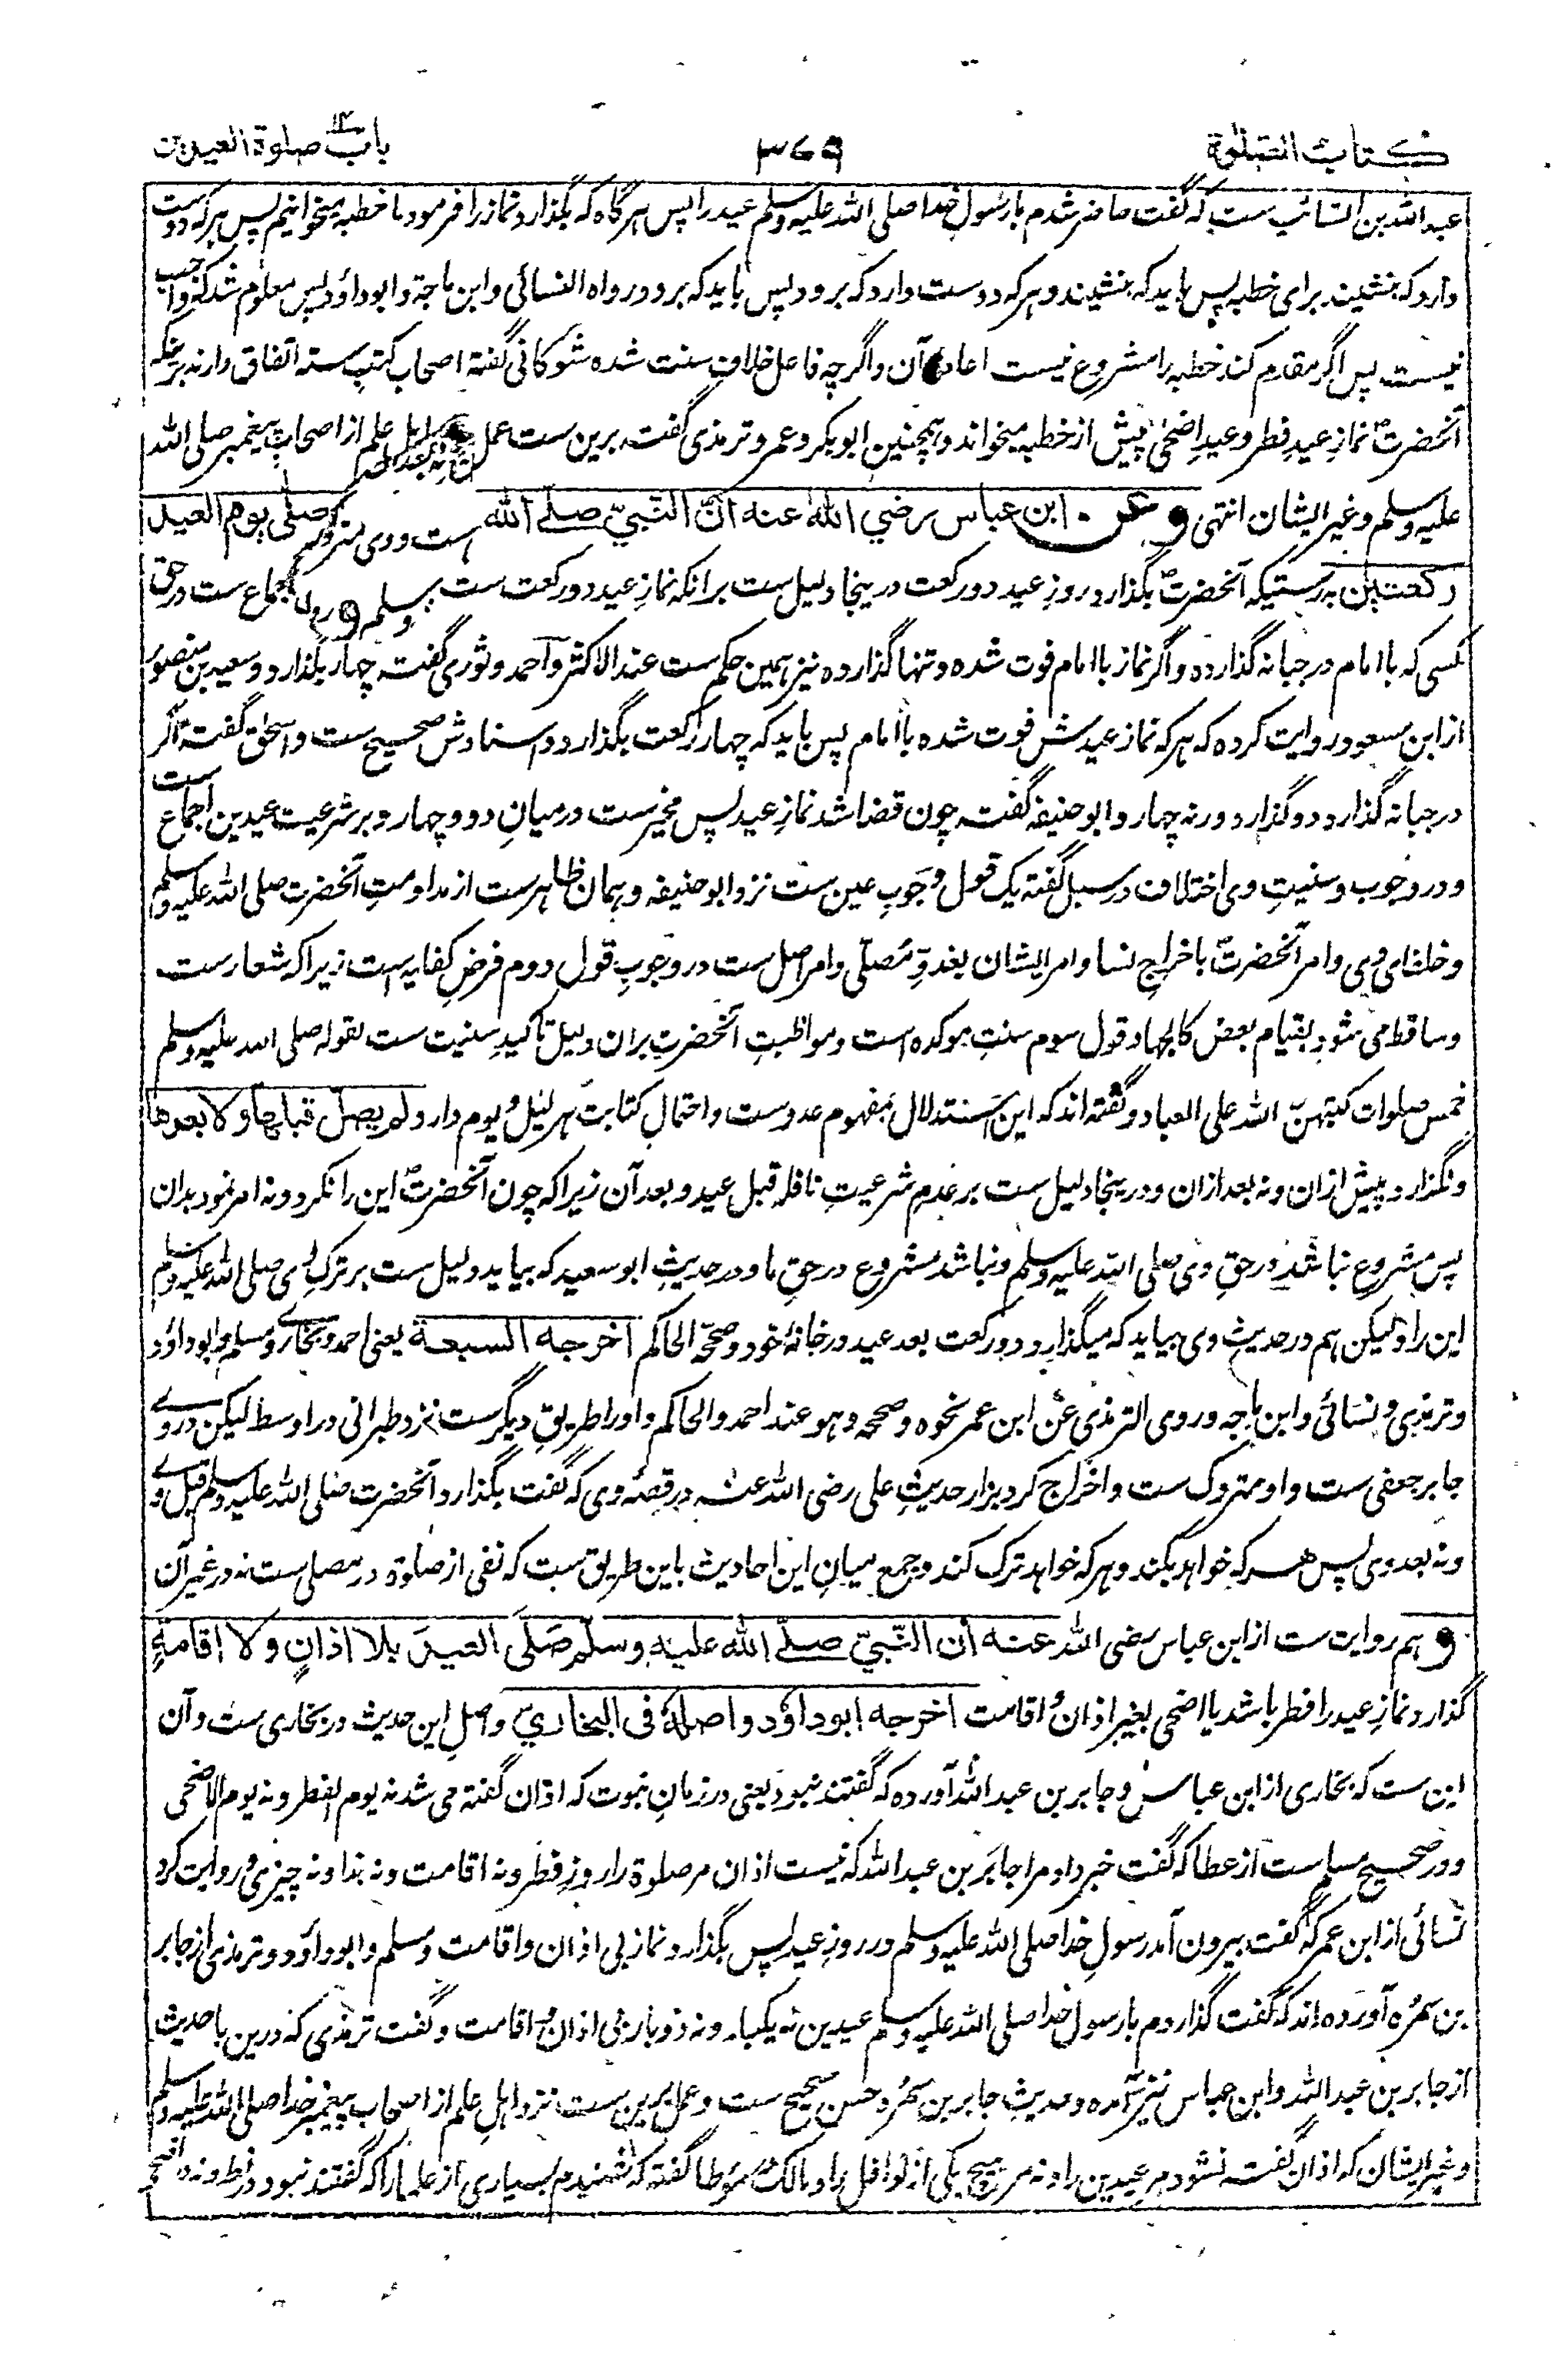 کتاب الصلوة
۳۷۹
باب صلوة العیدین
عبدالله بن السائب ست که گفت حاضر شدم با رسول خدا صلی الله علیه وسلم عید را پس هرگاه که بگذارد نماز را فرمود ما خطبه میخوانیم پس هرکه دوست
دارد که بنشیند برای خطبه پس باید که بنشیند و هرکه دوست دارد که برود پس باید که برود رواه النسائی وابن ماجة وابوداؤد پس معلوم شد که واجب
نیست پس اگر مقدم کند خطبه را مشروع نیست اعاده آن و اگرچه فاعل خلاف سنت شده شوکانی گفته اصحاب کتب سته اتفاق دارند برینکه
آنحضرت نماز عید فطر و عید اضحی پیش از خطبه میخواند و همچنین ابوبکر و عمر و ترمذی گفته برین ست عمل اهل علم از اصحاب پیغمبر صلی الله
علیه وسلم وغیر ایشان انتهی وعن ابن عباس رضي الله عنه ان النبي صلے الله است ووی متروک صلی یوم العید
رکعتین بدرستیکه آنحضرت بگذارد روز عید دو رکعت درینجا دلیل ست برانکه نماز عید دو رکعت ست وسلم اجماع ست در حق
کسی که با امام در جبانه گذارده و اگر نماز با امام فوت شده و تنها گذارده نیز همین حکم ست عند الاکثر و احمد و ثوری گفته چهار بگذارد و سعید بن منصور
از ابن مسعود روایت کرده که هرکه نماز عیدش فوت شده با امام پس باید که چهار رکعت بگذارد و اسنادش صحیح ست و اسحٰق گفته اگر
در جبانه گذارد دو گذارد ورنه چهار و ابوحنیفه گفته چون قضا شد نماز عید پس مخیرست درمیان دو و چهار و بر شرعیت عیدین اجماع ست
و در وجوب و سنیت وی اختلاف در سبل گفته یک قول وجوب عین ست نزد ابوحنیفه و همان ظاهرست از مداومت آنحضرت صلی الله علیه وسلم
و خلفای وی و امر آنحضرت باخراج نسا و امر ایشان بغدو مصلی و امر اصل ست در وجوب قول دوم فرض کفایه است زیراکه شعارست
و ساقط می شود بقیام بعض کالجهاد قول سوم سنت موکده است و مواظبت آنحضرت بران دلیل تاکید سنیت ست لقوله صلی الله علیه وسلم
خمس صلوات کتبهن الله علی العباد و گفته اند که این استدلال بمفهوم عددست و احتمال کتابت هر لیل و یوم دارد ولم یصل قبلها ولا بعدها
و نگذارد پیش ازان و نه بعد ازان و درینجا دلیل ست بر عدم شرعیت نافله قبل عید و بعد آن زیراکه چون آنحضرت این را نکرد و نه امر نمود بدان
پس مشروع نباشد در حق وی صلی الله علیه وسلم و نباشد مشروع در حق ما و در حدیث ابو سعید که بیاید دلیل ست بر ترک وی صلی الله علیه وسلم
این را ولیکن هم در حدیث وی بیاید که میگذارد دو رکعت بعد عید در خانهٔ خود و صححه الحاکم اخرجه السبعة یعنی احمد و بخاری و مسلم و ابوداؤد
و ترمذی و نسائی و ابن ماجه وروی الترمذی عن ابن عمر نحوه و صححه وهو عند احمد والحاکم و اورا طریق دیگرست نزد طبرانی در اوسط لیکن دروے
جابر جعفی ست و او متروک ست و اخراج کرد بزار حدیث علی رضی الله عنه در قصهٔ وی که گفت بگذارد آنحضرت صلی الله علیه وسلم قبل وے
و نه بعد وی پس هرکه خواهد بکند و هرکه خواهد ترک کند و جمع میان این احادیث باین طریق ست که نفی از صلوة در مصلی است نه در غیر آن
و هم روایت ست از ابن عباس رضی الله عنه ان النبي صلے الله علیه وسلم صلی العید بلا اذان ولا اقامة
گذارد نماز عید را فطر باشد یا اضحی بغیر اذان و اقامت اخرجه ابوداؤد واصله فی البخاري واصل این حدیث در بخاری ست و آن
این ست که بخاری از ابن عباس و جابر بن عبدالله آورده که گفتند نبود یعنی در زمان نبوت که اذان گفته می شد نه یوم الفطر و نه یوم الاضحی
و در صحیح مسلم ست از عطا که گفت خبر داد مرا جابر بن عبدالله که نیست اذان مر صلوة را روز فطر و نه اقامت و نه ندا و نه چیزی و روایت کرد
نسائی از ابن عمر که گفت بیرون آمد رسول خدا صلی الله علیه وسلم در روز عید پس بگذارد نماز بی اذان و اقامت و مسلم و ابوداؤد و ترمذی از جابر
بن سمره آورده اند که گفت گذاردم با رسول خدا صلی الله علیه وسلم عیدین نه یکبار و نه دوبار بی اذان و بی اقامت و گفت ترمذی که درین باب حدیث
از جابر بن عبدالله و ابن عباس نیز آمده و حدیث جابر بن سمره حسن صحیح ست و عمل برین ست نزد اهل علم از اصحاب پیغمبر خدا صلی الله علیه وسلم
و غیر ایشان که اذان گفته نشود مر عیدین را و نه مر هیچ یکی از نوافل را و مالک در موطا گفته که شنیدم بسیاری از علما را که گفتند نبود در فطر و نه در اضحی